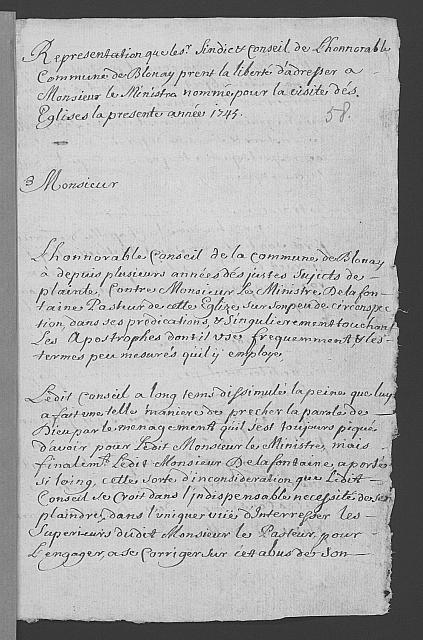 Representation que les Sr. Sindic & Conseil de L'honnorable
Commune de Blonay prent la liberté d'adresser a
Monsieur le Ministra nommé pour la visite des
Eglises la presente année 1745.
58.
Monsieur
L'honnorable Conseil de la commune de Blonay
à depuis plusieurs années des justes sujects de
plainte, contre Monsieur Le Ministre Delafon-
taine Pasteur de cette Eglize, sur son peu de circonspe-
ction, dans ses prédications, & Singulierement touchant
Les Apostrophes dont il use frequemment, & les
termes peu mesurés qu'il y employe,
Ledit Conseil a long tems dissimulé la peine que luy
a fait une telle maniere de precher la parole de
Dieu par le menagement qu'il s'est toujours piqué
d'avoir pour Ledit Monsieur le Ministre, mais
finalemt. Ledit Monsieur Delafontaine, a porté
si loing, cette sorte d'inconsideration, que Ledit
Conseil se Croit dans l'indispensable necessité de se
plaindre, dans l'unique vüe d'Interresser les
Superieurs dudit Monsieur le Pasteur, pour
L'engager, a se Corriger sur cet abus de son